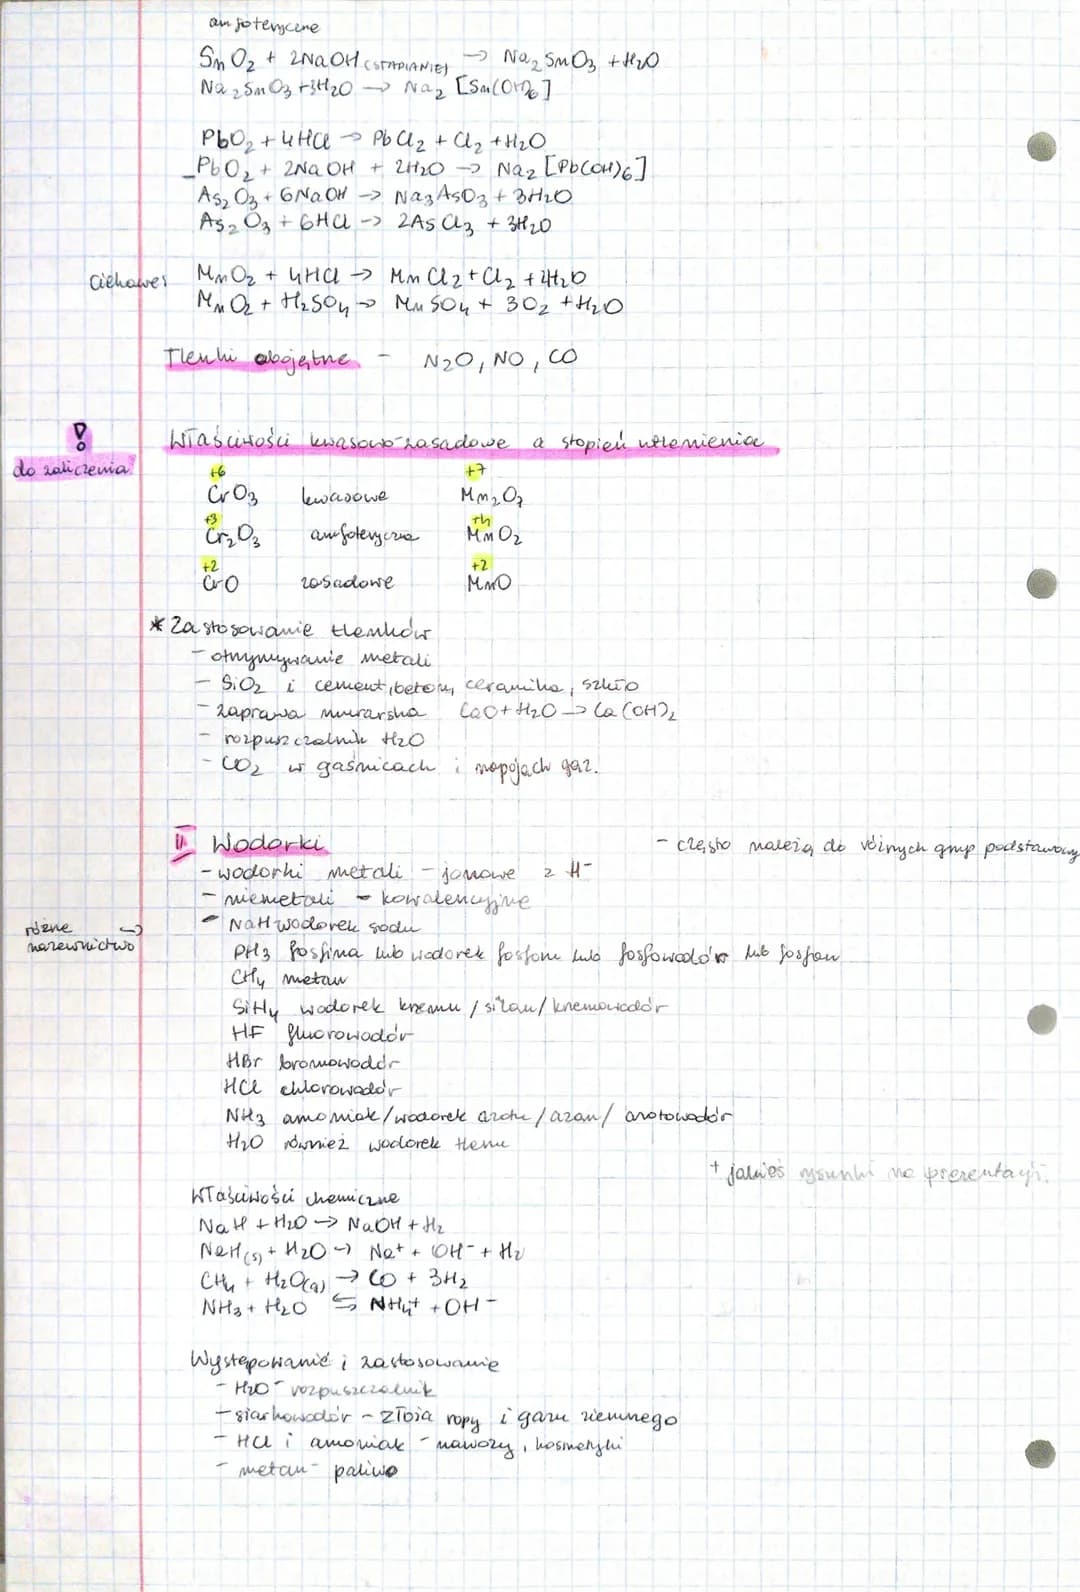 amfoteryczne
SnO₂ + 2NaOH (STAPIANIE) → Na₂SnO₃ + H₂O
Na₂SnO₃ + 3H₂O → Na₂[Sn(OH)₆]
PbO₂ + 4HCl → PbCl₂ + Cl₂ + H₂O
PbO₂ + 2NaOH + 2H₂O → Na₂[Pb(OH)₆]
As₂O₃ + 6NaOH → Na₃AsO₃ + 3H₂O
As₂O₃ + 6HCl → 2AsCl₃ + 3H₂O
ciekawe: MnO₂ + 4HCl → MnCl₂ + Cl₂ + 2H₂O
MnO₂ + H₂SO₄ → MnSO₄ + 3O₂ + H₂O
Tlenki obojętne - N₂O, NO, CO
! Właściwości kwasowo-zasadowe a stopień utlenienia
do zaliczenia!
+6 +7
CrO₃ kwasowe Mn₂O₇
+3 +4
Cr₂O₃ amfoteryczne MnO₂
+2 +2
CrO zasadowe MnO
* Zastosowanie tlenków
- otrzymywanie metali
- SiO₂ i cement, beton, ceramika, szkło
- zaprawa murarska CaO + H₂O → Ca(OH)₂
- rozpuszczalnik H₂O
- CO₂ w gaśnicach i napojach gaz.
II Wodorki - często należą do różnych grup podstawowy
- wodorki metali - jonowe z H⁻
- niemetali - kowalencyjne
- NaH wodorek sodu
różne → nazewnictwo
PH₃ fosfina lub wodorek fosforu lub fosfowodór lub fosfan
CH₄ metan
SiH₄ wodorek krzemu / silan / krzemowodór
HF fluorowodór
HBr bromowodór
HCl chlorowodór
NH₃ amoniak / wodorek azotu / azan / azotowodór
H₂O również wodorek tlenu
+ jakieś rysunki na prezentacji.
Właściwości chemiczne
NaH + H₂O → NaOH + H₂
NaH(s) + H₂O → Na⁺ + OH⁻ + H₂
CH₄ + H₂O(g) → CO + 3H₂
NH₃ + H₂O ⇆ NH₄⁺ + OH⁻
Występowanie i zastosowanie
- H₂O - rozpuszczalnik
- siarkowodór - złoża ropy i gazu ziemnego
- HCl i amoniak - nawozy, kosmetyki
- metan - paliwo